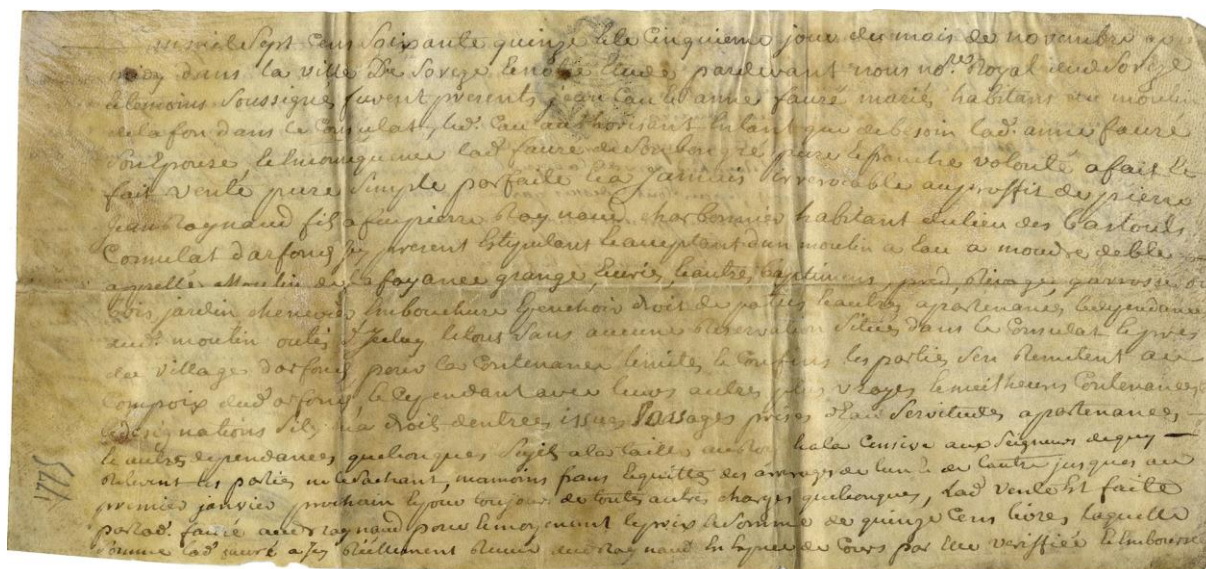 mil Sept Cens Soixante quinze & le Cinquieme jour du mois de novembre
dans la ville De Soreze & notre Etude pardevant nous no.re Royal dud Soreze
& temoins Soussignes furent presents jean Cau & anne fauré mariés habitans au moulin
de la fon dans le Consulat led. Cau authorisant En tant que de besoin lad. anne fauré
Son Epouze lad fauré de Son bon gré pure & franche volonté a fait &
fait vente pure Simple parfaite & a Jamais irrevocable au proffit de pierre
Jean Raynaud fils a feu pierre Raynaud charbonnier habitant du lieu des Castouls
Consulat d'arfons Jcy present & Stipulant & acceptant d'un moulin a Eau a moudre de ble
appellé Moulin de la fayance grange, Ecurie, & autres baptimens, pred, Rivage, garrosse,
bois jardin cheneviere Embouchure droit de paties & autres apartenances & dependances
aud. moulin outils d'Jceluy & tout Sans aucune Reservation Situés dans le Consulat & pres
du village d'arfons pour la Contenance limites & Confins les parties S'en Remetent au
Compoix dud arfons & Cependant avec leurs autres plus vrayes & meilheures Contenances
& designations S'il y en a droit d'entrées issues Passages prises d'Eau Servitudes apartenances
& autres dependances quelconques Sujet a la taille au Roy & a la Censive aux Seigneurs de qui
Relevent les parties ne le Sachant, neamoins franc & quitte des arrerages de l'un & de l'autre jusques au
premier janvier prochain & pour toujours de toutes autres charges quelconques, Lad vente Est faite
par lad. fauré aud Raynaud pour & moyenant le prix & Somme de quinze Cens livres laquelle
Somme lad. fauré a Jcy Réellement Recue dud Raynaud En Especes de Cours par Elle verifflée & Emboursée
1775